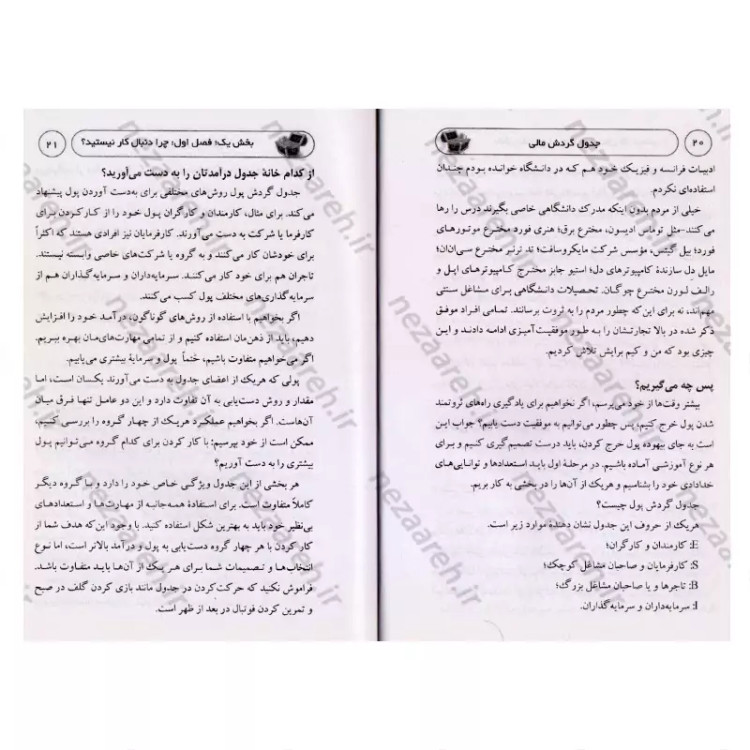 ۲۰
جدول گردش مالی
ادبیات فرانسه و فیزیک خود هم که در دانشگاه خوانده بودم چندان
استفاده‌ای نکردم.
خیلی از مردم بدون اینکه مدرک دانشگاهی خاصی بگیرند درس را رها
می‌کنند-مثل توماس ادیسون، مخترع برق؛ هنری فورد مخترع موتورهای
فورد؛ بیل گیتس، مؤسس شرکت مایکروسافت؛ تد ترنر مخترع سی‌ان‌ان؛
مایل دل سازندهٔ کامپیوترهای دل؛ استیو جابز مخترع کامپیوترهای اپل و
رالف لورن مخترع چوگان. تحصیلات دانشگاهی برای مشاغل سنتی
مهم‌اند، نه برای این که چطور مردم را به ثروت برسانند. تمامی افراد موفق
ذکر شده در بالا تجارتشان را به طور موفقیت‌آمیزی ادامه دادند و این
چیزی بود که من و کیم برایش تلاش کردیم.
پس چه می‌گیریم؟
بیشتر وقت‌ها از خود می‌پرسم، اگر نخواهیم برای یادگیری راه‌های ثروتمند
شدن پول خرج کنیم، پس چطور می‌توانیم به موفقیت دست یابیم؟ جواب این
است به جای بیهوده پول خرج کردن، باید درست تصمیم‌گیری کنیم و برای
هر نوع آموزشی آماده باشیم. در مرحلهٔ اول باید استعدادها و توانایی‌های
خدادادی خود را بشناسیم و هریک از آن‌ها را در بخشی به کار بریم.
جدول گردش پول چیست؟
هریک از حروف این جدول نشان دهنده موارد زیر است.
E: کارمندان و کارگران؛
S: کارفرمایان و صاحبان مشاغل کوچک؛
B: تاجرها و یا صاحبان مشاغل بزرگ؛
I: سرمایه‌داران و سرمایه‌گذاران.
بخش یک؛ فصل اول: چرا دنبال کار نیستید؟
۲۱
از کدام خانهٔ جدول درآمدتان را به دست می‌آورید؟
جدول گردش پول روش‌های مختلفی برای به‌دست آوردن پول پیشنهاد
می‌کند. برای مثال، کارمندان و کارگران پول خود را از کارکردن برای
کارفرما یا شرکت به دست می‌آورند. کارفرمایان نیز افرادی هستند که اکثراً
برای خودشان کار می‌کنند و به گروه یا شرکت‌های خاصی وابسته نیستند.
تاجران هم برای خود کار می‌کنند. سرمایه‌داران و سرمایه‌گذاران هم از
سرمایه‌گذاری‌های مختلف پول کسب می‌کنند.
اگر بخواهیم با استفاده از روش‌های گوناگون، درآمد خود را افزایش
دهیم، باید از ذهن‌مان استفاده کنیم و از تمامی مهارت‌های‌مان بهره ببریم.
اگر می‌خواهیم متفاوت باشیم، حتماً پول و سرمایهٔ بیشتری می‌یابیم.
پولی که هریک از اعضای جدول به دست می‌آورند یکسان است، اما
مقدار و روش دست‌یابی به آن تفاوت دارد و این دو عامل تنها فرق میان
آن‌هاست. اگر بخواهیم عملکرد هریک از چهار گروه را بررسی کنیم،
ممکن است از خود بپرسیم: با کار کردن برای کدام گروه می‌توانیم پول
بیشتری را به دست آوریم؟
هر بخشی از این جدول ویژگی خاص خود را دارد و با گروه دیگر
کاملاً متفاوت است. برای استفادهٔ همه‌جانبه از مهارت‌ها و استعدادهای
بی‌نظیر خود باید به بهترین شکل استفاده کنید. با وجود این‌که هدف شما از
کار کردن با هر چهار گروه دست‌یابی به پول و درآمد بالاتر است، اما نوع
انتخاب‌ها و تصمیمات شما برای هر یک از آن‌ها باید متفاوت باشد.
فراموش نکنید که حرکت‌کردن در جدول مانند بازی کردن گلف در صبح
و تمرین کردن فوتبال در بعد از ظهر است.
nezaareh.ir